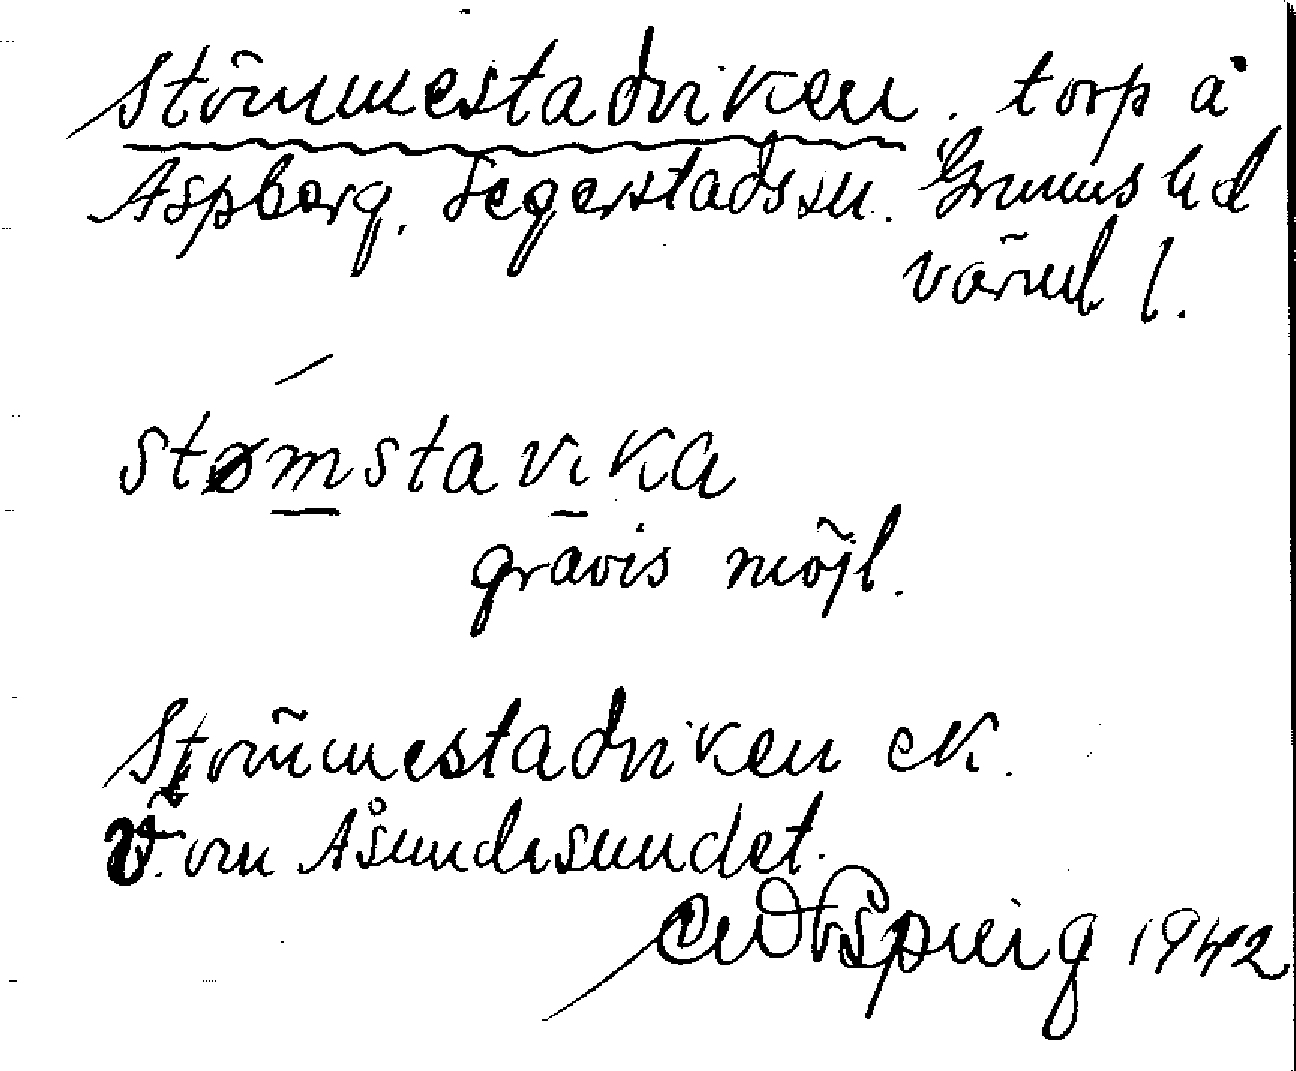 Stömmestadviken. torp å
Aspberg, Segerstads sn. Grums hd
Värml l.
stømstavika
gravis möjl.
Stömmestadviken ek.
V. om Åsundasundet.
1942